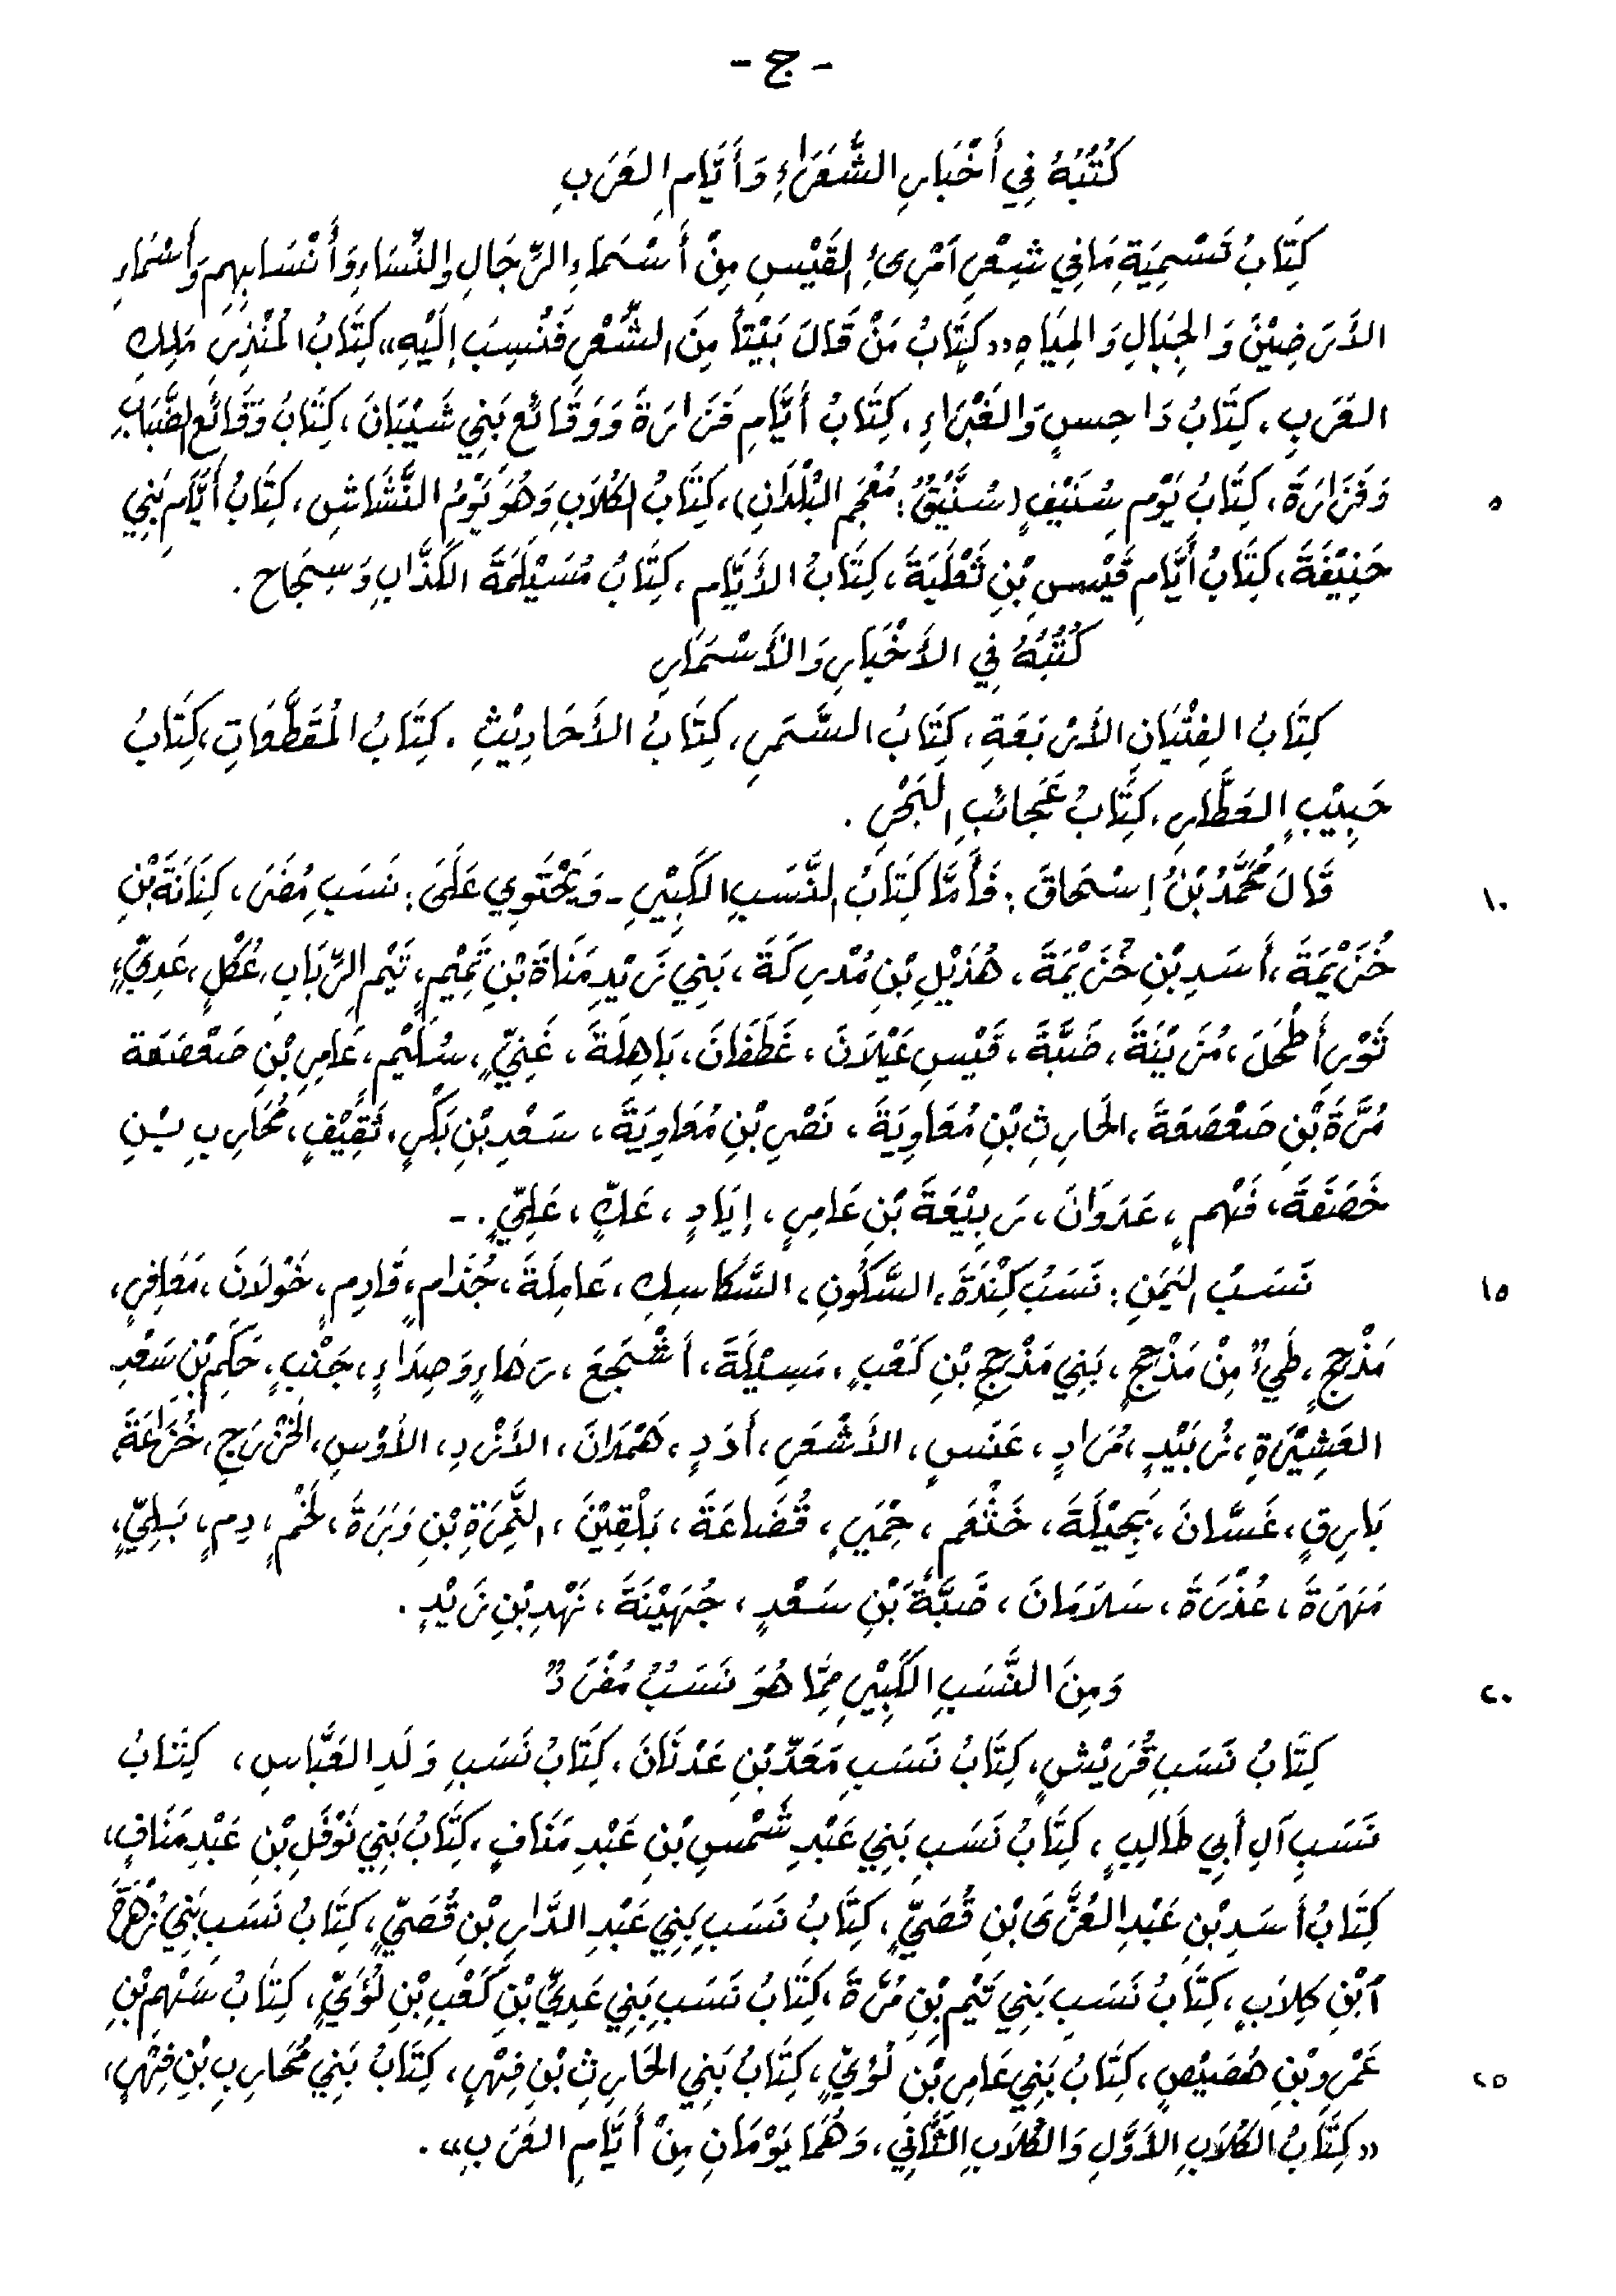 - ج -
كُتُبُهُ فِي أَخْبَارِ الشُّعَرَاءِ وَأَيَّامِ العَرَبِ
كِتَابُ تَسْمِيَةِ مَا فِي شِعْرِ آمْرِئِ القَيْسِ مِنْ أَسْمَاءِ الرِّجَالِ وَالنِّسَاءِ وَأَنْسَابِهِم وَأَسْمَاءِ
الأَرَضِيْنَ وَالجِبَالِ وَالمِيَاهِ «كِتَابُ مَنْ قَالَ بَيْتاً مِنَ الشِّعْرِ فَنُسِبَ إِلَيْهِ» كِتَابُ المُنْذِرِ مَلِكِ
العَرَبِ، كِتَابُ دَاحِسٍ وَالغَبْرَاءِ، كِتَابُ أَيَّامِ فَزَارَةَ وَوَقَائِعِ بَنِي شَيْبَانَ، كِتَابُ وَقَائِعِ الضِّبَابِ
وَفَزَارَةَ، كِتَابُ يَوْمِ سُنَيْفٍ (سُنَّيْقٌ: مُعْجَمِ البُلْدَانِ)، كِتَابُ الكُلَابِ وَهُوَ يَوْمُ النَّشَاشِ، كِتَابُ أَيَّامِ بَنِي ٥
حَنِيْفَةَ، كِتَابُ أَيَّامِ قَيْسِ بْنِ ثَعْلَبَةَ، كِتَابُ الأَيَّامِ، كِتَابُ مُسَيْلَمَةَ الكَذَّابِ وَسِجَاح.
كُتُبُهُ فِي الأَخْبَارِ وَالأَسْمَارِ
كِتَابُ الفِتْيَانِ الأَرْبَعَةِ، كِتَابُ السَّمَرِ، كِتَابُ الأَحَادِيْثِ، كِتَابُ المُقَطَّعَاتِ، كِتَابُ
حَبِيْبٍ العَطَّارِ، كِتَابُ عَجَائِبِ البَحْرِ.
قَالَ مُحَمَّدُ بْنُ إِسْحَاقَ: فَأَمَّا كِتَابُ النَّسَبِ الكَبِيْرِ - وَيَحْتَوِي عَلَى: نَسَبِ مُضَرَ، كِنَانَةَ بْنِ ١٠
خُزَيْمَةَ، أَسَدِ بْنِ خُزَيْمَةَ، هُذَيْلِ بْنِ مُدْرِكَةَ، بَنِي زَيْدِ مَنَاةَ بْنِ تَمِيْمٍ، تَيْمِ الرِّبَابِ، عُكْلٍ، عَدِيٍّ،
ثَوْرِ أَطْحَلَ، مُزَيْنَةَ، ضَبَّةَ، قَيْسِ عَيْلَانَ، غَطَفَانَ، بَاهِلَةَ، غَنِيٍّ، سُلَيْمٍ، عَامِرِ بْنِ صَعْصَعَة
مُرَّةَ بْنِ صَعْصَعَةَ، الحَارِثِ بْنِ مُعَاوِيَةَ، نَصْرِ بْنِ مُعَاوِيَةَ، سَعْدِ بْنِ بَكْرٍ، ثَقِيْفٍ، مُحَارِبِ بْنِ
خَصَفَةَ، فَهْمٍ، عَدَوَانَ، رَبِيْعَةَ بْنِ عَامِرٍ، إِيَادٍ، عَكٍّ، عَلِيٍّ. -
نَسَبُ اليَمَنِ: نَسَبُ كِنْدَةَ، السَّكُونِ، السَّكَاسِكِ، عَامِلَةَ، جُذَامٍ، قَادِمٍ، خَوْلَانَ، مَعَافِرٍ، ١٥
مَذْحِجٍ، طَيِءٌ مِنْ مَذْحِجٍ، بَنِي مَذْحِجِ بْنِ كَعْبٍ، مَسِيْلَةَ، أَشْجَعَ، رَهَاءٍ وَصِدَاءٍ، جَنْبٍ، حَكَمِ بْنِ سَعْدِ
العَشِيْرَةِ، زُبَيْدٍ، مُرَادٍ، عَنَسٍ، الأَشْعَرِ، أَدَدٍ، هَمْدَانَ، الأَزْدِ، الأَوْسِ، الخَزْرَجِ، خُزَاعَةَ،
بَارِقٍ، غَسَّانَ، بَجِيْلَةَ، خَثْعَمٍ، حِمْيَرٍ، قُضَاعَةَ، بَلْقِيْنَ، النَّمِرَةِ بْنِ وَبَرَةَ، لَخْمٍ، دِمٍ، بَلِيٍّ،
مَهَرَةَ، عُذْرَةَ، سَلَامَانَ، ضَبَّةَ بْنِ سَعْدٍ، جُهَيْنَةَ، نَهْدِ بْنِ زَيْدٍ.
وَمِنَ النَّسَبِ الكَبِيْرِ مِمَّا هُوَ نَسَبٌ مُفْرَدٌ ٢٠
كِتَابُ نَسَبِ قُرَيْشٍ، كِتَابُ نَسَبِ مَعَدِّ بْنِ عَدْنَانَ، كِتَابُ نَسَبِ وَلَدِ العَبَّاسِ، كِتَابُ
نَسَبِ آلِ أَبِي طَالِبٍ، كِتَابُ نَسَبِ بَنِي عَبْدِ شَمْسِ بْنِ عَبْدِ مَنَافٍ، كِتَابُ بَنِي نَوْفَلِ بْنِ عَبْدِ مَنَافٍ،
كِتَابُ أَسَدِ بْنِ عَبْدِ العُزَّى بْنِ قُصَيٍّ، كِتَابُ نَسَبِ بَنِي عَبْدِ الدَّارِ بْنِ قُصَيٍّ، كِتَابُ نَسَبِ بَنِي زُهْرَةَ
آبْنِ كِلَابٍ، كِتَابُ نَسَبِ بَنِي تَيْمِ بْنِ مُرَّةَ، كِتَابُ نَسَبِ بَنِي عَدِيِّ بْنِ كَعْبِ بْنِ لُؤَيٍّ، كِتَابُ سَهْمِ بْنِ
عَمْرِو بْنِ هُصَيْصٍ، كِتَابُ بَنِي عَامِرِ بْنِ لُؤَيٍّ، كِتَابُ بَنِي الحَارِثِ بْنِ فِهْرٍ، كِتَابُ بَنِي مُحَارِبِ بْنِ فِهْرٍ، ٢٥
«كِتَابُ الكُلَابِ الأَوَّلِ وَالكُلَابِ الثَّانِي، وَهُمَا يَوْمَانِ مِنْ أَيَّامِ العَرَبِ».